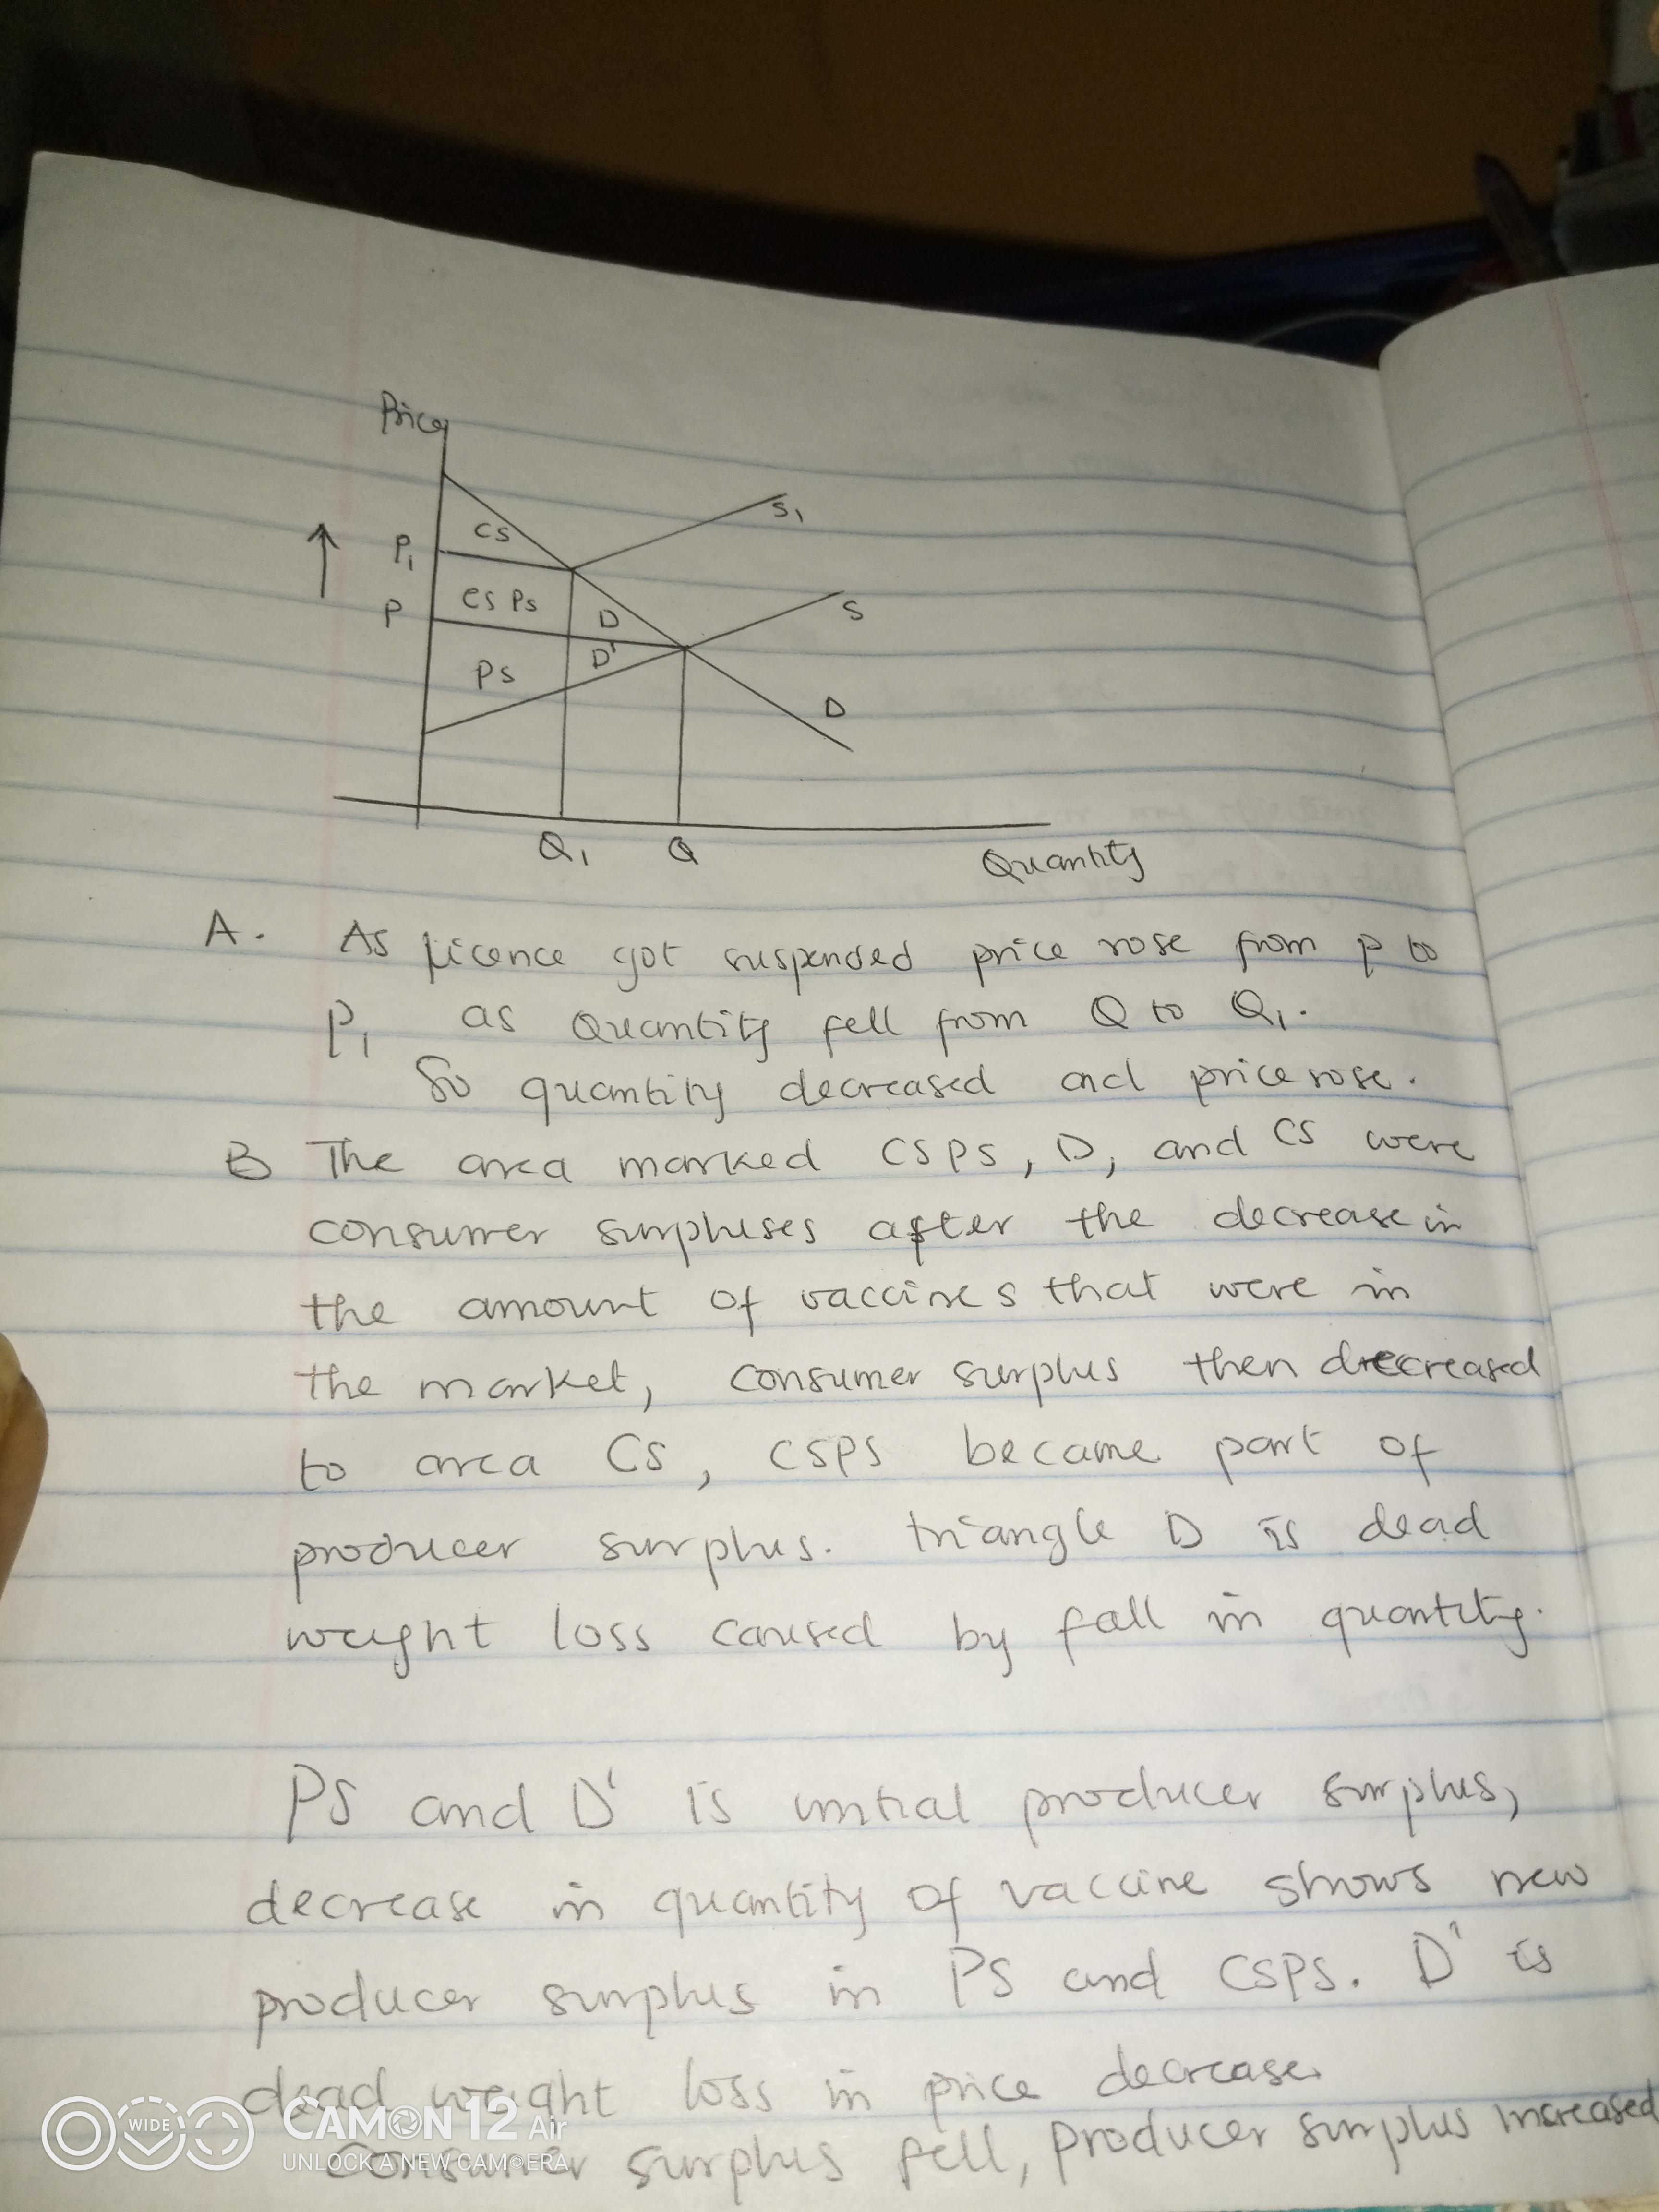 Price
S₁
CS
P₁
CS PS
D
S
P
D'
PS
D
Q₁ Q
Quantity
A. As licence got suspended price rose from p to
P₁ as Quantity fell from Q to Q₁.
So quantity decreased and price rose.
B The area marked CSPS, D, and CS were
consumer surpluses after the decrease in
the amount of vaccines that were in
the market, consumer surplus then decreased
to area CS, CSPS became part of
producer surplus. triangle D is dead
weight loss caused by fall in quantity.
PS and D' is initial producer surplus,
decrease in quantity of vaccine shows new
producer surplus in PS and CSPS. D' is
dead weight loss in price decrease.
consumer surplus fell, producer surplus increased
WIDE
CAMON 12 Air
UNLOCK A NEW CAMERA